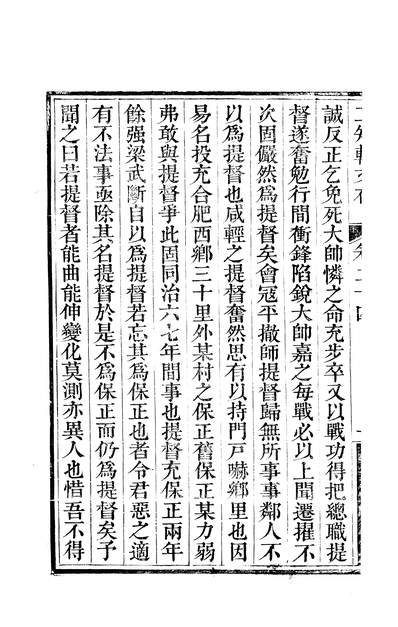 誠反正乞免死大帥憐之命充步卒又以戰功得把總職提
督遂奮勉行間衝鋒陷銳大帥嘉之每戰必以上聞遷擢不
次固儼然為提督矣會冦平撤師提督歸無所事事鄰人不
以為提督也咸輕之提督奮然思有以持門戸嚇鄉里也因
易名投充合肥西鄉三十里外某村之保正舊保正某力弱
弗敢與提督爭此固同治六七年間事也提督充保正兩年
餘强梁武斷自以為提督若忘其為保正也者令君惡之適
有不法事亟除其名提督於是不為保正而仍為提督矣予
聞之曰若提督者能曲能伸變化莫測亦異人也惜吾不得